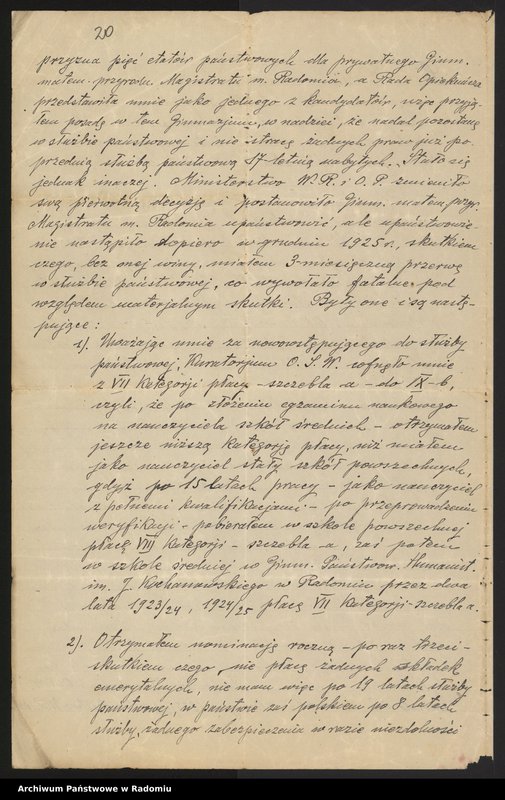 20
przyzna pięć etatów państwowych dla prywatnego Gimn.
matem. przyrodn. Magistratu m. Radomia, a Rada Opiekuńcza
przedstawiła mnie jako jednego z kandydatów, więc przyją-
łem posadę w tem Gimnazjum, w nadziei, że nadal pozostanę
w służbie państwowej i nie stracę żadnych praw już po-
przednią służbą państwową 17-letnią nabytych. Stało się
jednak inaczej. Ministerstwo W. R. i O. P. zmieniło
swą pierwotną decyzję i postanowiło Gimn. matem. przyr.
Magistratu m. Radomia upaństwowić, ale upaństwowie-
nie nastąpiło dopiero w grudniu 1925 r., skutkiem
czego, bez mej winy, miałem 3-miesięczną przerwę
w służbie państwowej, co wywołało fatalne pod
względem materjalnym skutki. Były one i są nastę-
pujące:
1). Uważając mnie za nowowstępującego do służby
państwowej, Kuratorjum O. S. W. cofnęło mnie
z VII Kategorji płacy - szczebla a - do IX-b,
czyli, że po złożeniu egzaminu naukowego
na nauczyciela szkół średnich - otrzymałem
jeszcze niższą Kategorję płacy, niż miałem
jako nauczyciel stały szkół powszechnych,
gdyż po 15 latach pracy - jako nauczyciel
z pełnemi kwalifikacjami - po przeprowadzeniu
weryfikacji - pobierałem w szkole powszechnej
płacę VIII Kategorji - szczebla - a, zaś potem
w szkole średniej w Gimn. Państwow. Humanist.
im. J. Kochanowskiego w Radomiu przez dwa
lata 1923/24, 1924/25 płacę VII Kategorji - szczebla a.
2). Otrzymałem nominację roczną - po raz trzeci -
skutkiem czego, nie płacę żadnych składek
emerytalnych, nie mam więc po 19 latach służby
państwowej, w państwie zaś polskiem po 8 latach
służby, żadnego zabezpieczenia w razie niezdolności
Archiwum Państwowe w Radomiu